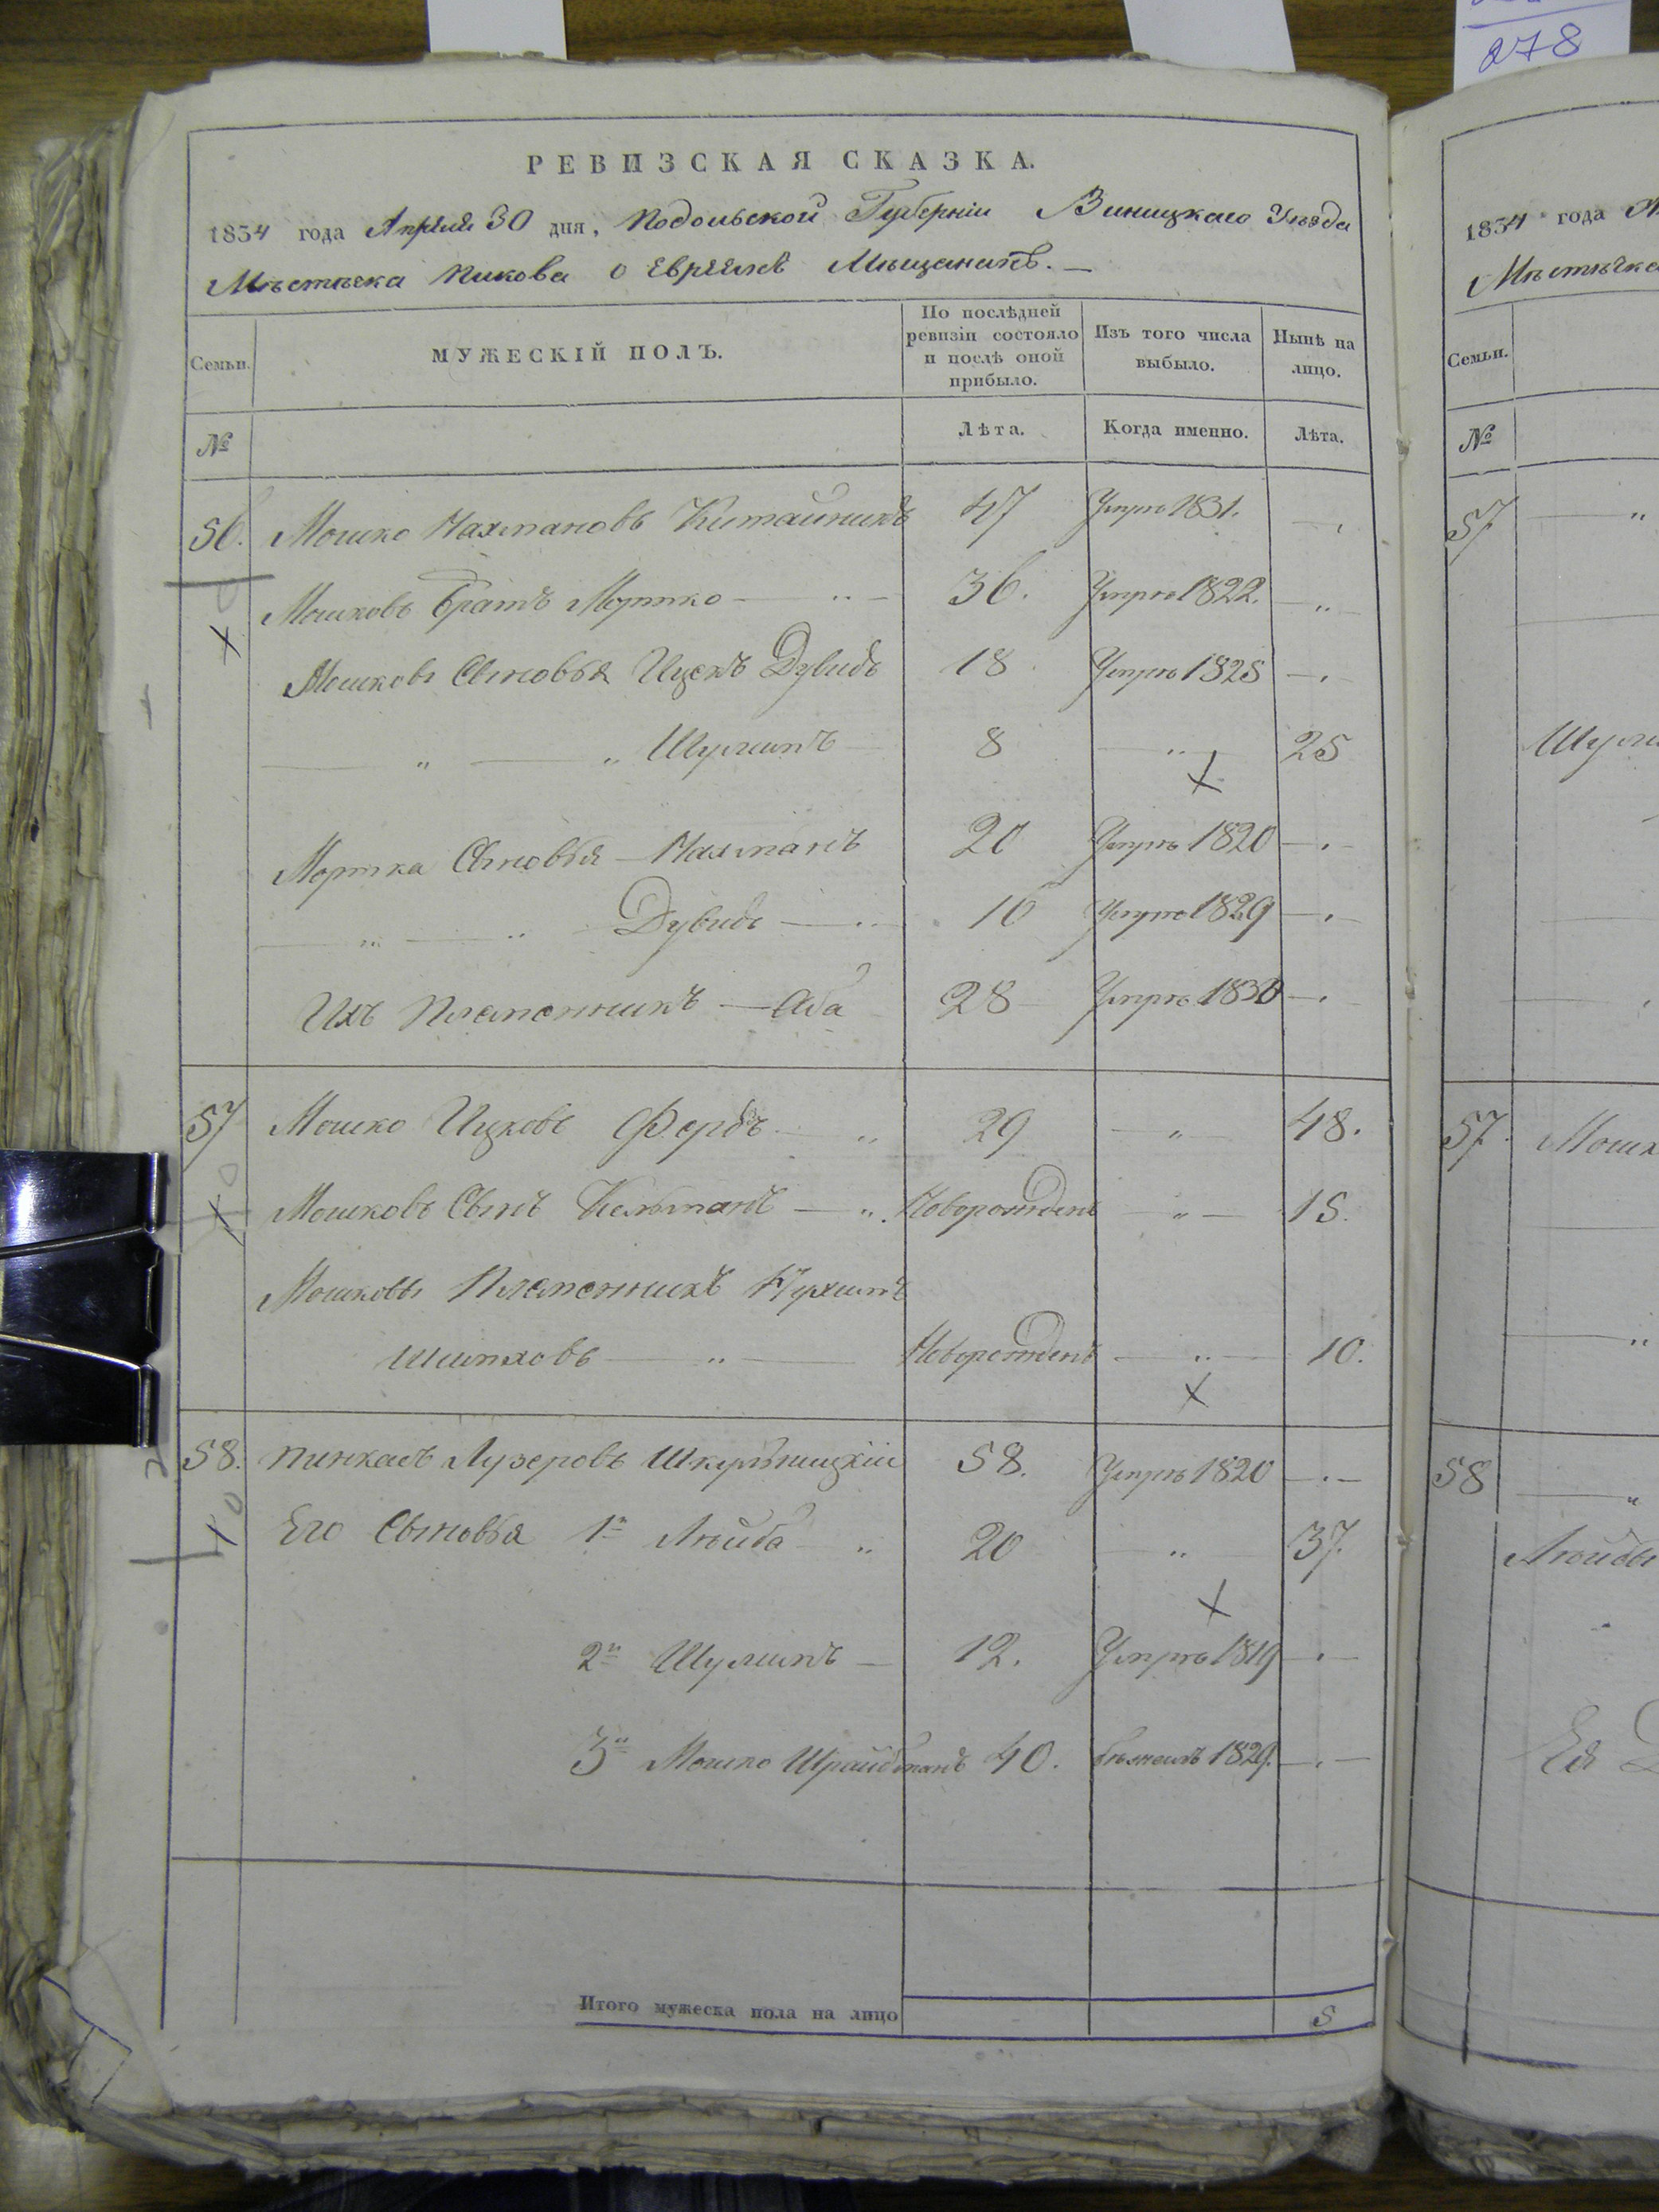 278
РЕВИЗСКАЯ СКАЗКА.
1834 года Апреля 30 дня, Подольской Губерніи Виницкаго Уѣзда
Мѣстечка Пикова о Евреяхъ Мѣщанахъ.
Семьи. МУЖЕСКІЙ ПОЛЪ. По послѣдней ревизіи состояло и послѣ оной прибыло. Изъ того числа выбыло. Нынѣ на лицо.
№ Лѣта. Когда именно. Лѣта.
56. Мошко Нахмановъ Китайникъ 47 Умре 1831.
Мошковъ братъ Мортко 36. Умре 1822.
Мошковы Сыновья Ицекъ Дувидъ 18 Умре 1825
" " Шулимъ 8 " 25
Мортка Сыновья Нахманъ 20 Умре 1820
" " Дувидъ 16 Умре 1829
Ихъ Племенникъ Аба 28 Умре 1830
57 Мошко Ицковъ Фербъ " 29 " 48.
Мошковъ Сынъ Кельманъ " Новорожденъ " 15.
Мошковъ Племенникъ Нухимъ
Шимховъ " Новорожденъ " 10.
58. Пинкасъ Лузеровъ 58. Умре 1820
Его Сыновья 1й Лейба " 20 " 37.
2й Шулимъ 12. Умре 1819
3й Мошко Шрайбманъ 40. бежалъ 1829.
Итого мужеска пола на лицо 5
1834 года
Мѣстечка
Семьи.
№
57 "
Шули
57.
58 "
Лейбы
Ея